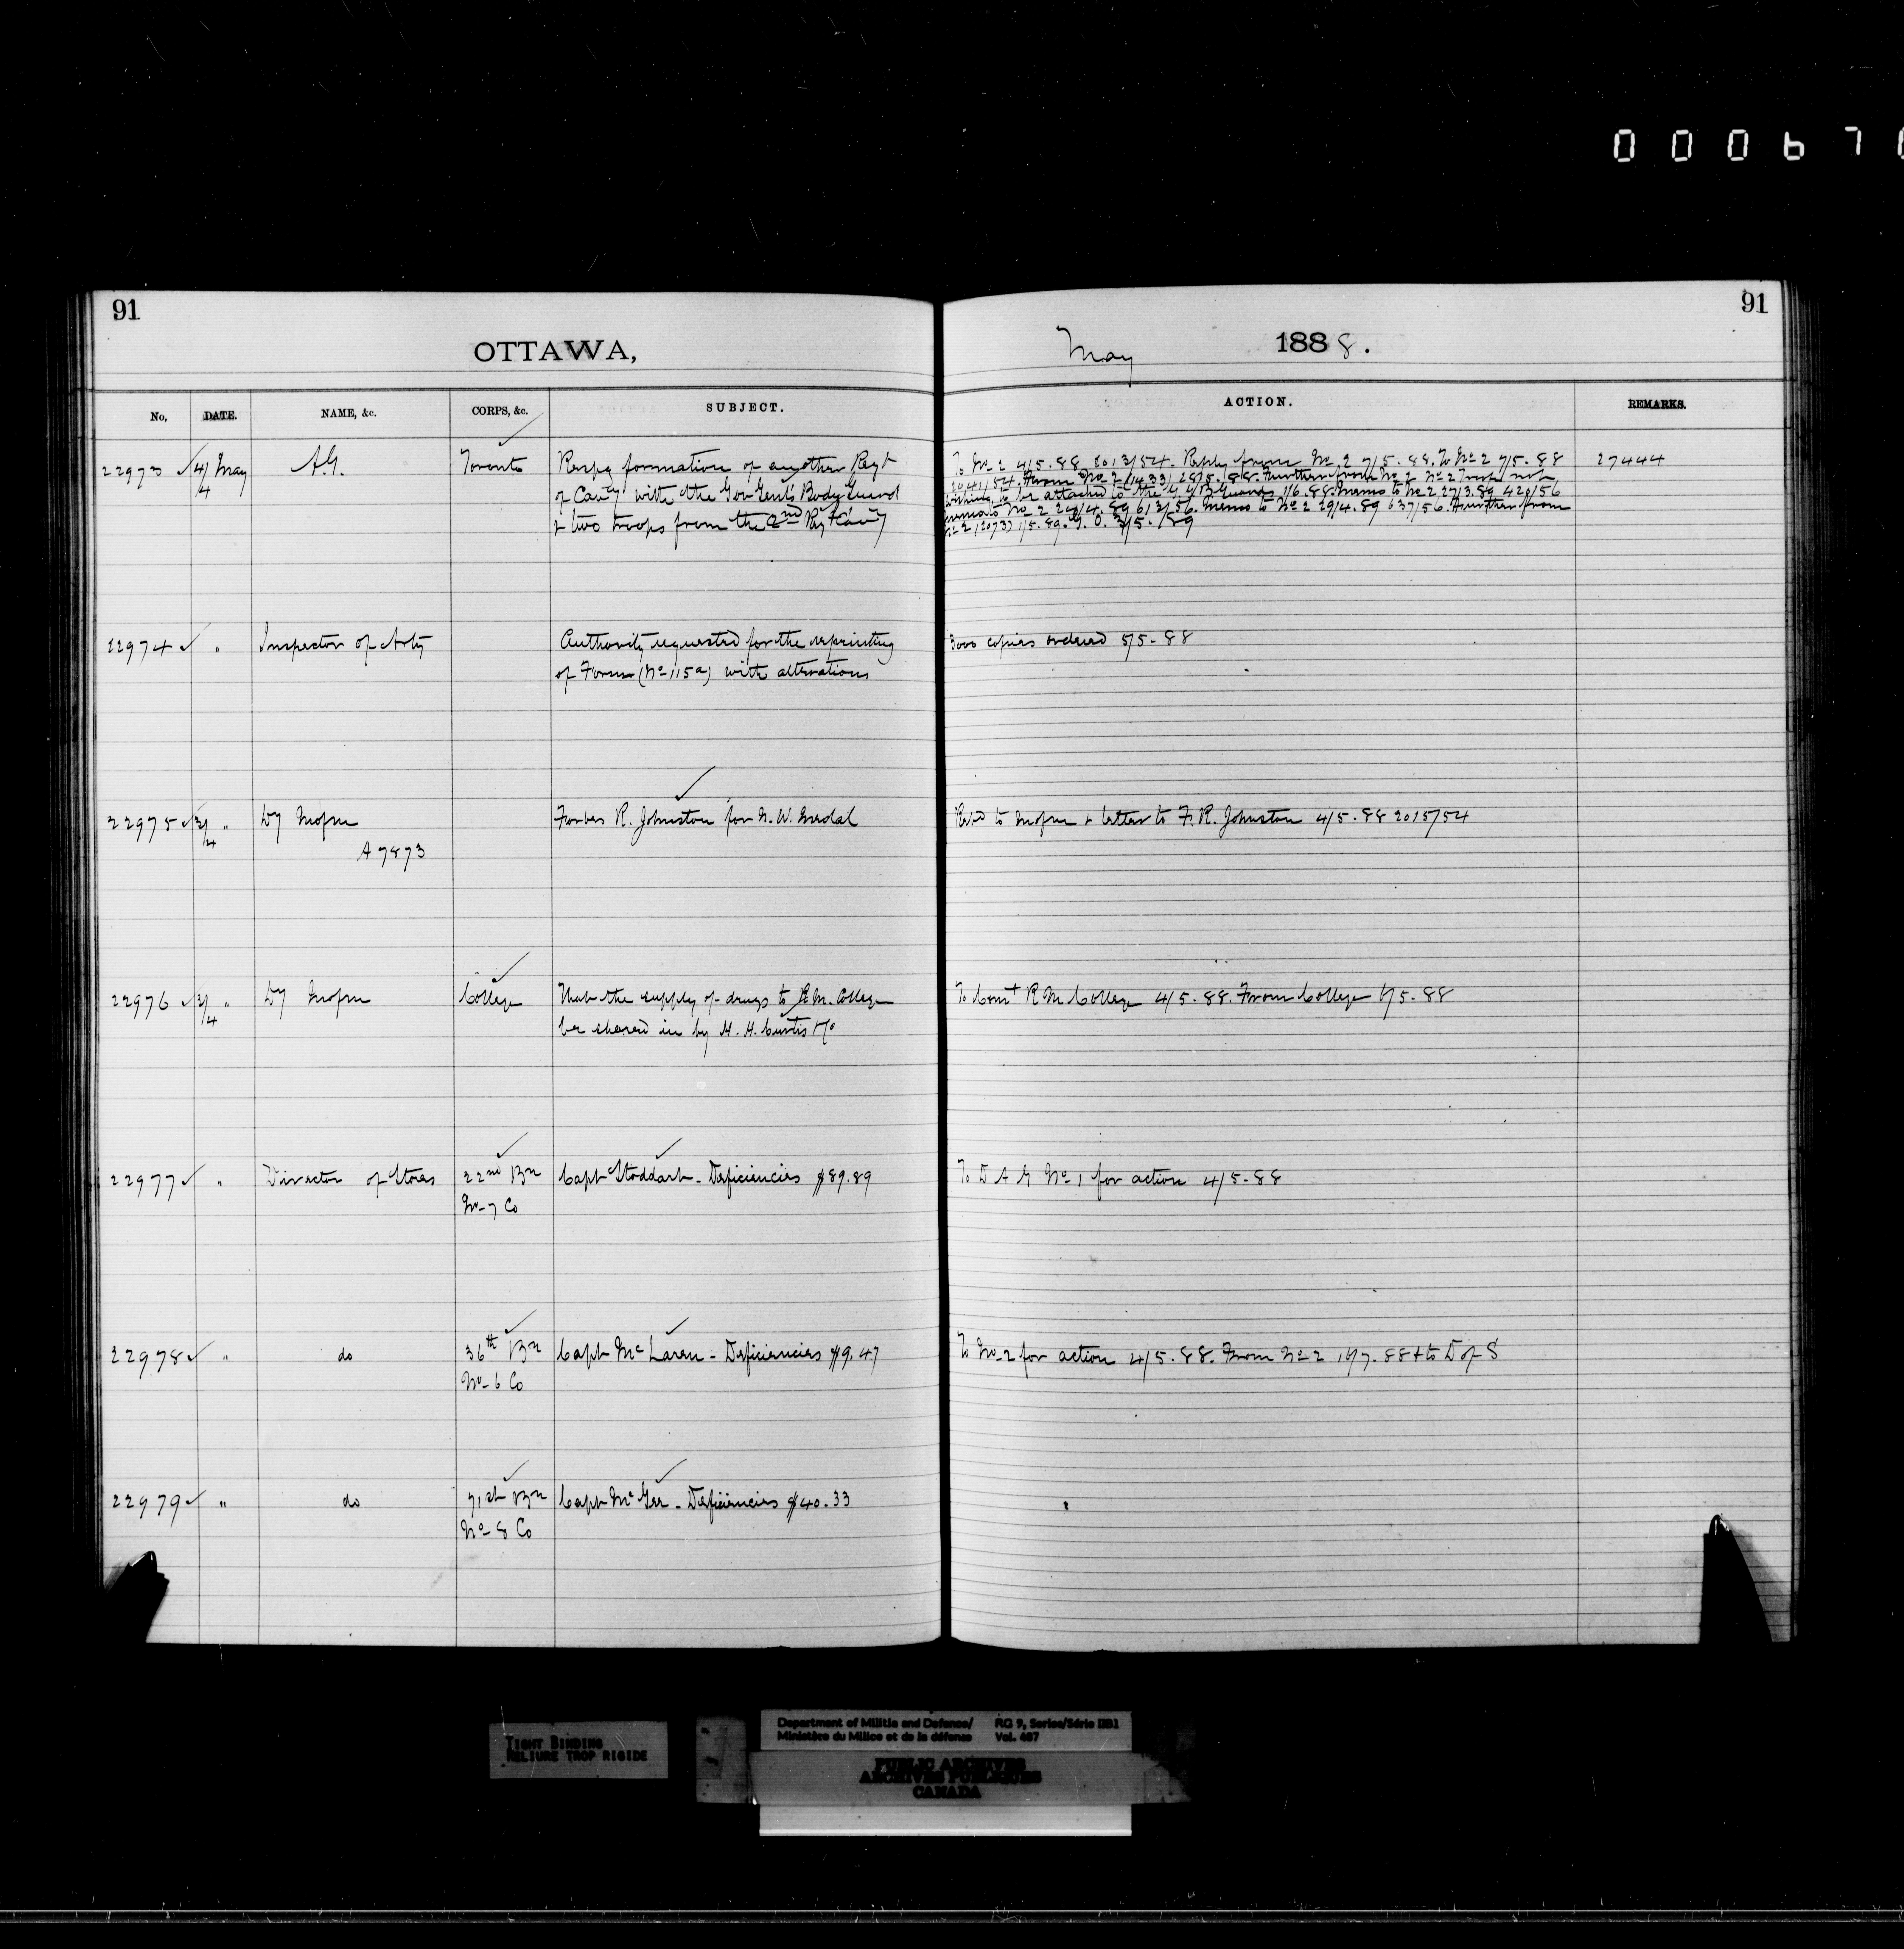 00067
91
91
OTTAWA,
May 1888.
No. DATE. NAME, &c. CORPS, &c. SUBJECT. ACTION. REMARKS.
22973 4/4 May A.G. Toronto Respg formation of another Regt
of Cavy with the Gov Genl's Body Guard
& two troops from the 2nd Regt Cavy
To No 2 4/5.88 2013/54. Reply from No 2 7/5.88. To No 2 7/5.88 27444
2041/54. From No 2 (1433) 28/5.88. Further from No 2 No 2 Troop not
wishing to be attached to the G.G.B. Guards 1/6.88. Memo to No 2 27/3.89 420/56
memo to No 2 24/4.89 613/56. Memo to No 2 29/4.89 637/56. Another from
No 2 (2073) 1/5.89. G.O. 3/5./89
22974 " Inspector of Arty Authority requested for the reprinting
of Form (No 115a) with alterations
3000 copies ordered 5/5-88
22975 3/4 " Dy Mofm Forbes R. Johnston for N.W. Medal
A 7873
Retd to Mofm & letter to F.R. Johnston 4/5.88 2015/54
22976 3/4 " Dy Mofm College That the supply of drugs to R.M. College
be shared in by H.H. Curtis &Co
To Comt R M College 4/5.88. From College 17/5.88
22977 " Director of Stores 22nd Bn Capt Stoddart - Deficiencies $89.89
No-7 Co
To D A G No 1 for action 4/5-88
22978 " do 36th Bn Capt McLaren - Deficiencies $9.47
No-6 Co
To No-2 for action 4/5.88. From No 2 16/7.88 & to D of S
22979 " do 71st Bn Capt McGee - Deficiencies $40.33
No-8 Co
TIGHT BINDING
RELIURE TROP RIGIDE
Department of Militia and Defence/ RG 9, Series/Série IIB1
Ministère du Milice et de la défense Vol. 487
PUBLIC ARCHIVES
ARCHIVES PUBLIQUES
CANADA